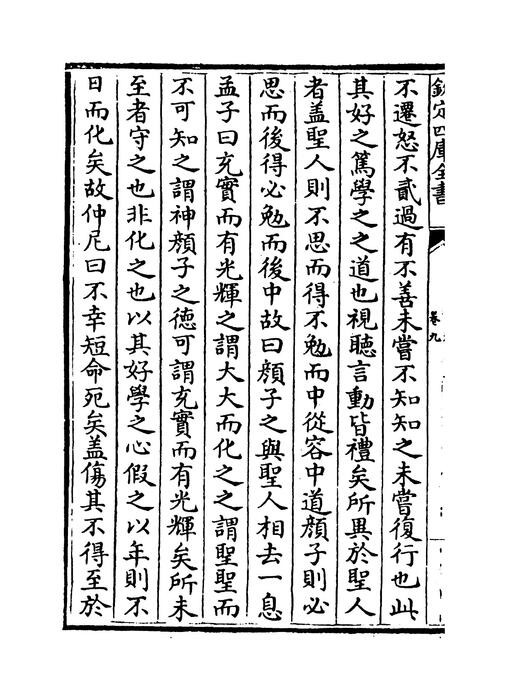 欽定四庫全書
卷九
不遷怒不貳過有不善未嘗不知知之未嘗復行也此
其好之篤學之之道也視聽言動皆禮矣所異於聖人
者盖聖人則不思而得不勉而中從容中道顔子則必
思而後得必勉而後中故曰顔子之與聖人相去一息
孟子曰充實而有光輝之謂大大而化之之謂聖聖而
不可知之謂神顔子之徳可謂充實而有光輝矣所未
至者守之也非化之也以其好學之心假之以年則不
日而化矣故仲尼曰不幸短命死矣盖傷其不得至於